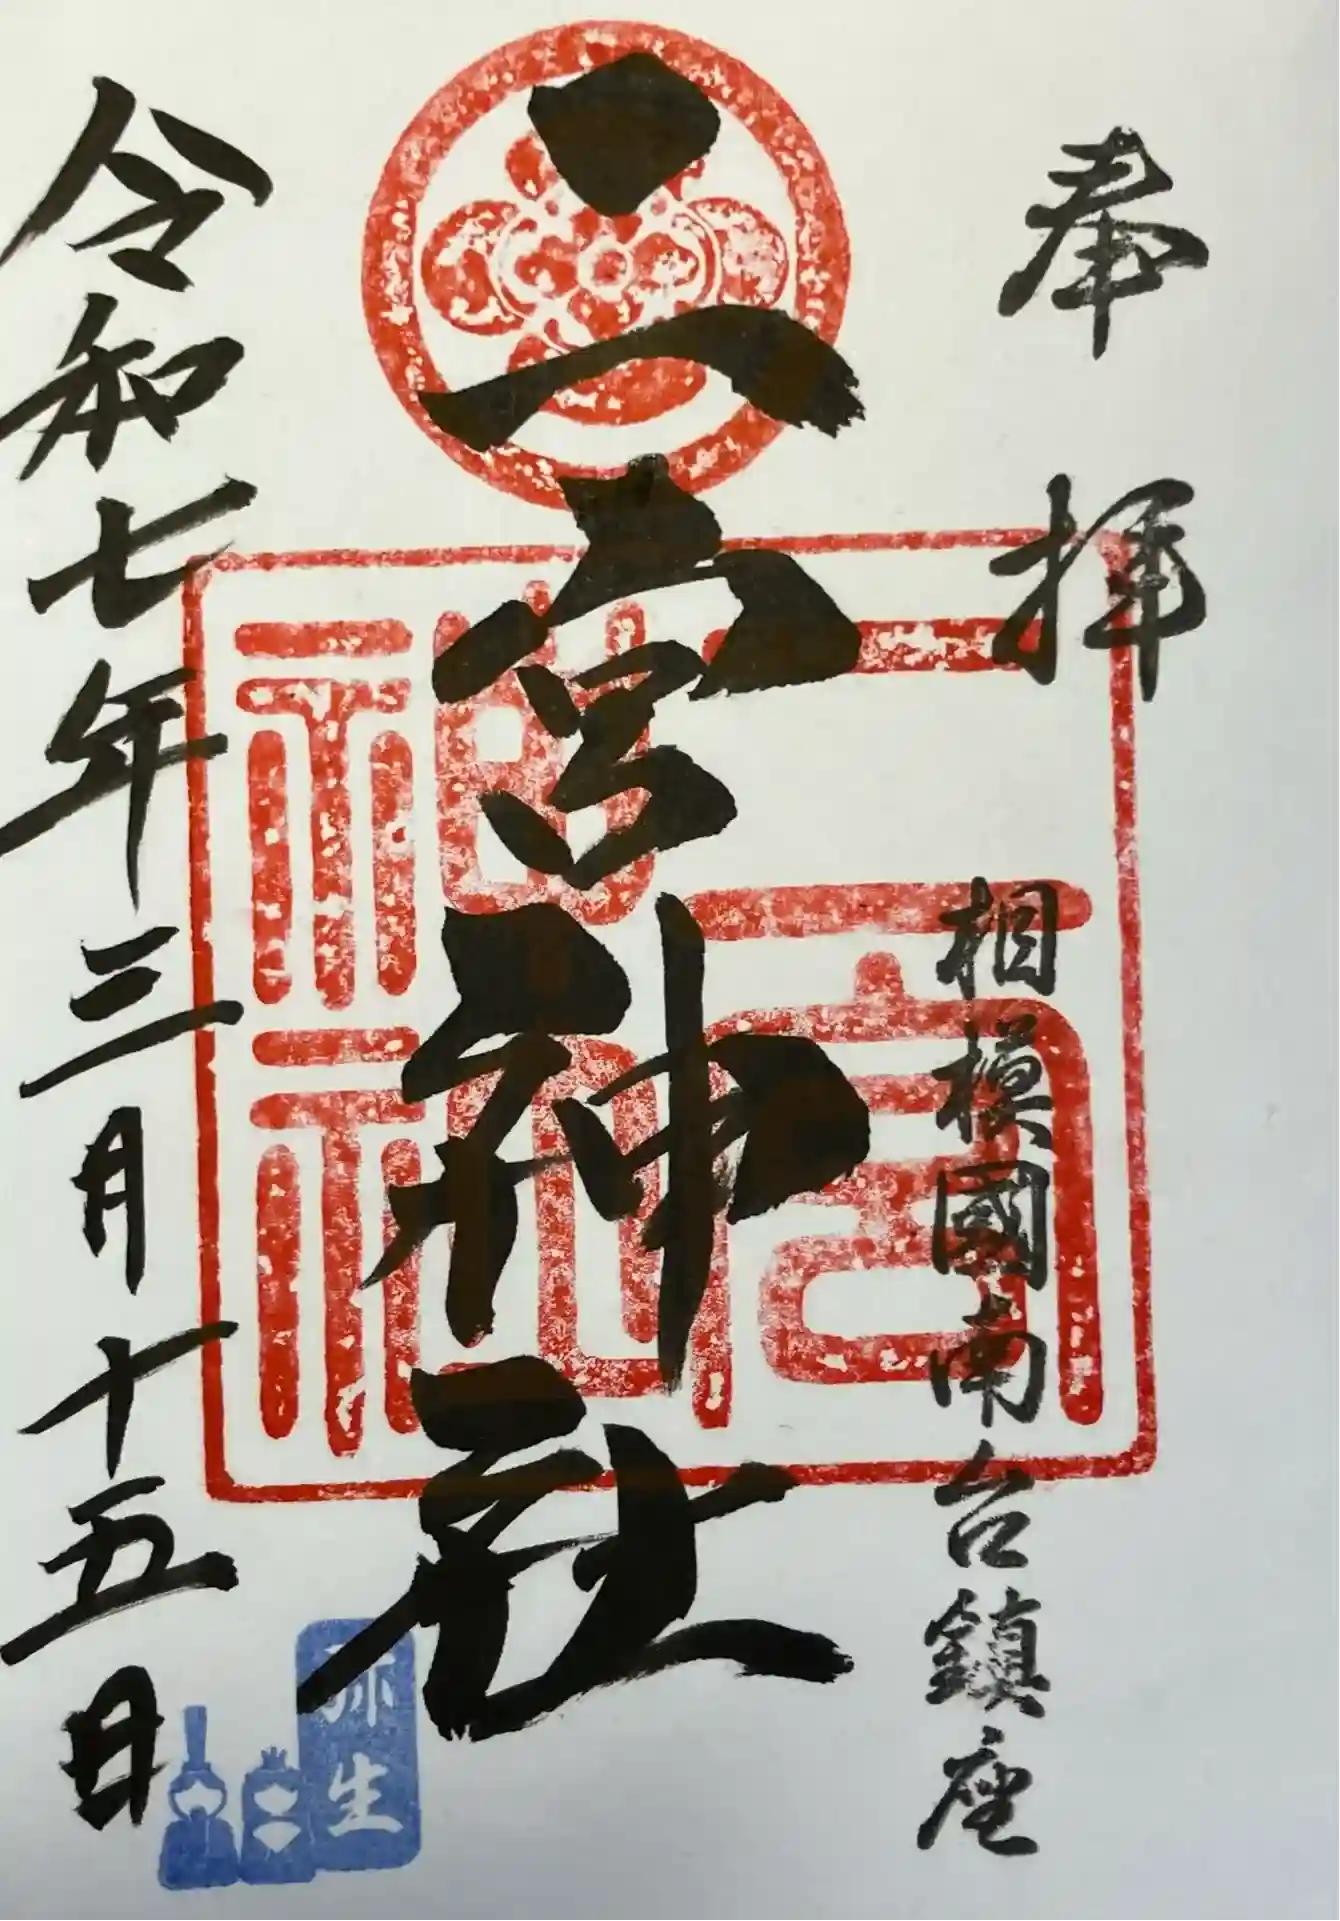 奉拝
相模國南台鎮座
二宮神社
二宮
神社
令和七年三月十五日
弥生